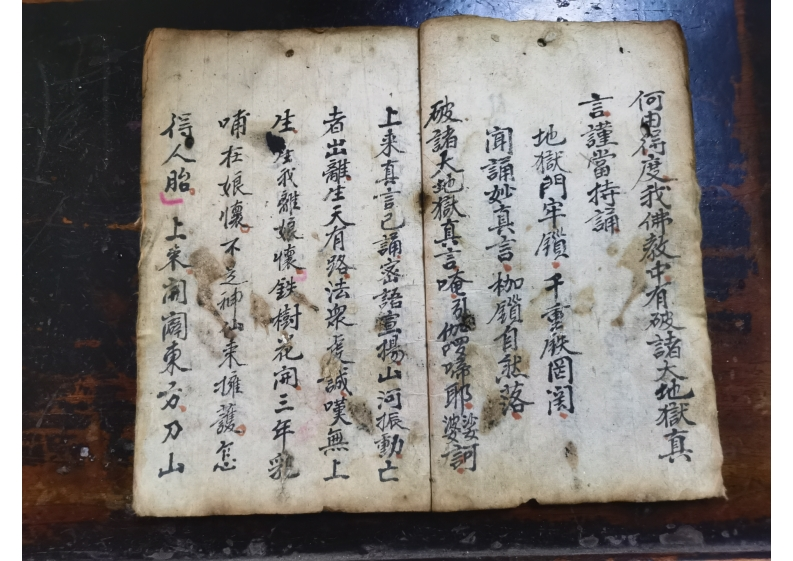 何由得度我佛教中有破諸大地獄真
言謹當持誦
地獄門牢鎖千重鉄罔関
聞誦妙真言枷鎖自然落
破諸大地獄真言唵引伽囉帝耶娑婆訶
上来真言已誦密語宣揚山河振動亡
者出離生天有路法衆虔誠嘆無上
生生我離娘懷鉄樹花開三年乳
哺在娘懷不是神仙来擁護怎
得人胎上来開闢東方刀山